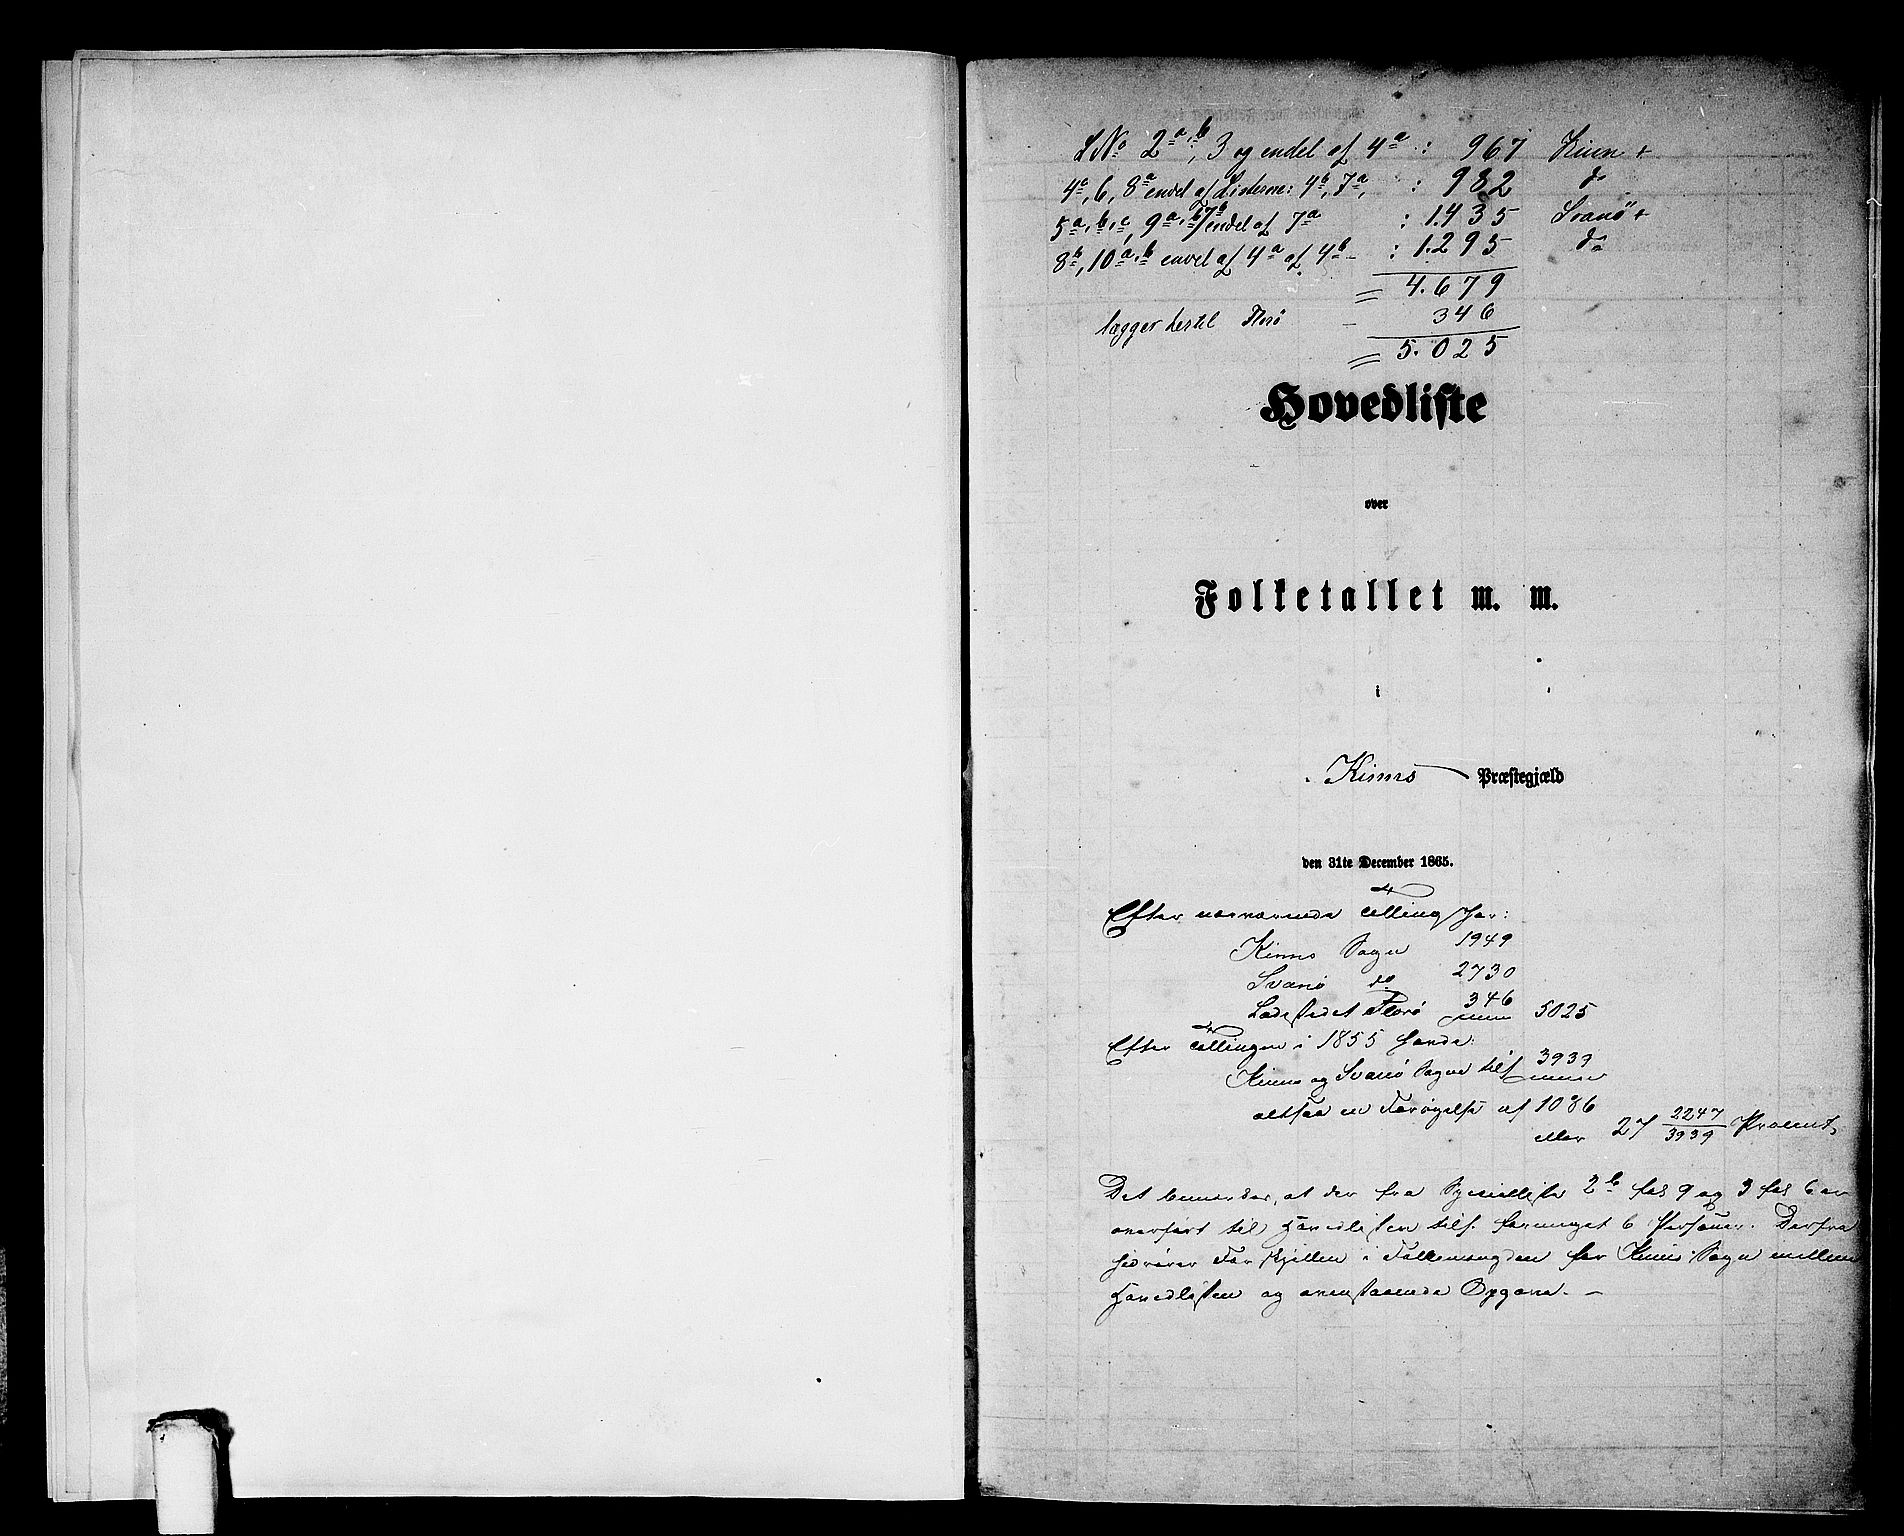 L No 2a,b, 3 og endel af 4a : 967 Kinn +
4c, 6, 8a endel af Listerne: 4b, 7a, : 982 do
5a,b,c, 9a,b, 7b endel af 7a : 1.435 Svanö +
8b, 10a,b endel af 4a af 4b : 1.295 do
= 4.679
lægger hertil Florö - 346
= 5.025
Hovedliste
over
Folketallet m. m.
i
Kinns Præstegjæld
den 31te December 1865.
Efter nærværende Tælling har:
Kinns Sogn 1949
Svanø do 2730
Ladestedet Florø 346 5025
Efter Tællingen i 1855 havde
Kinns og Svanø Sogne tils. 3939
altsaa en Forøgelse af 1086
eller 27 2247/3939 Procent.
Det bemærkes, at der fra Specialliste 2b Pag 9 og 3 Pag 6 er
overført til Hovedlisten tils. formeget 6 Personer. Derfra
hidrører Forskjellen i Folkemængden for Kinns Sogn mellem
Hovedlisten og ovenstaaende Opgave. -